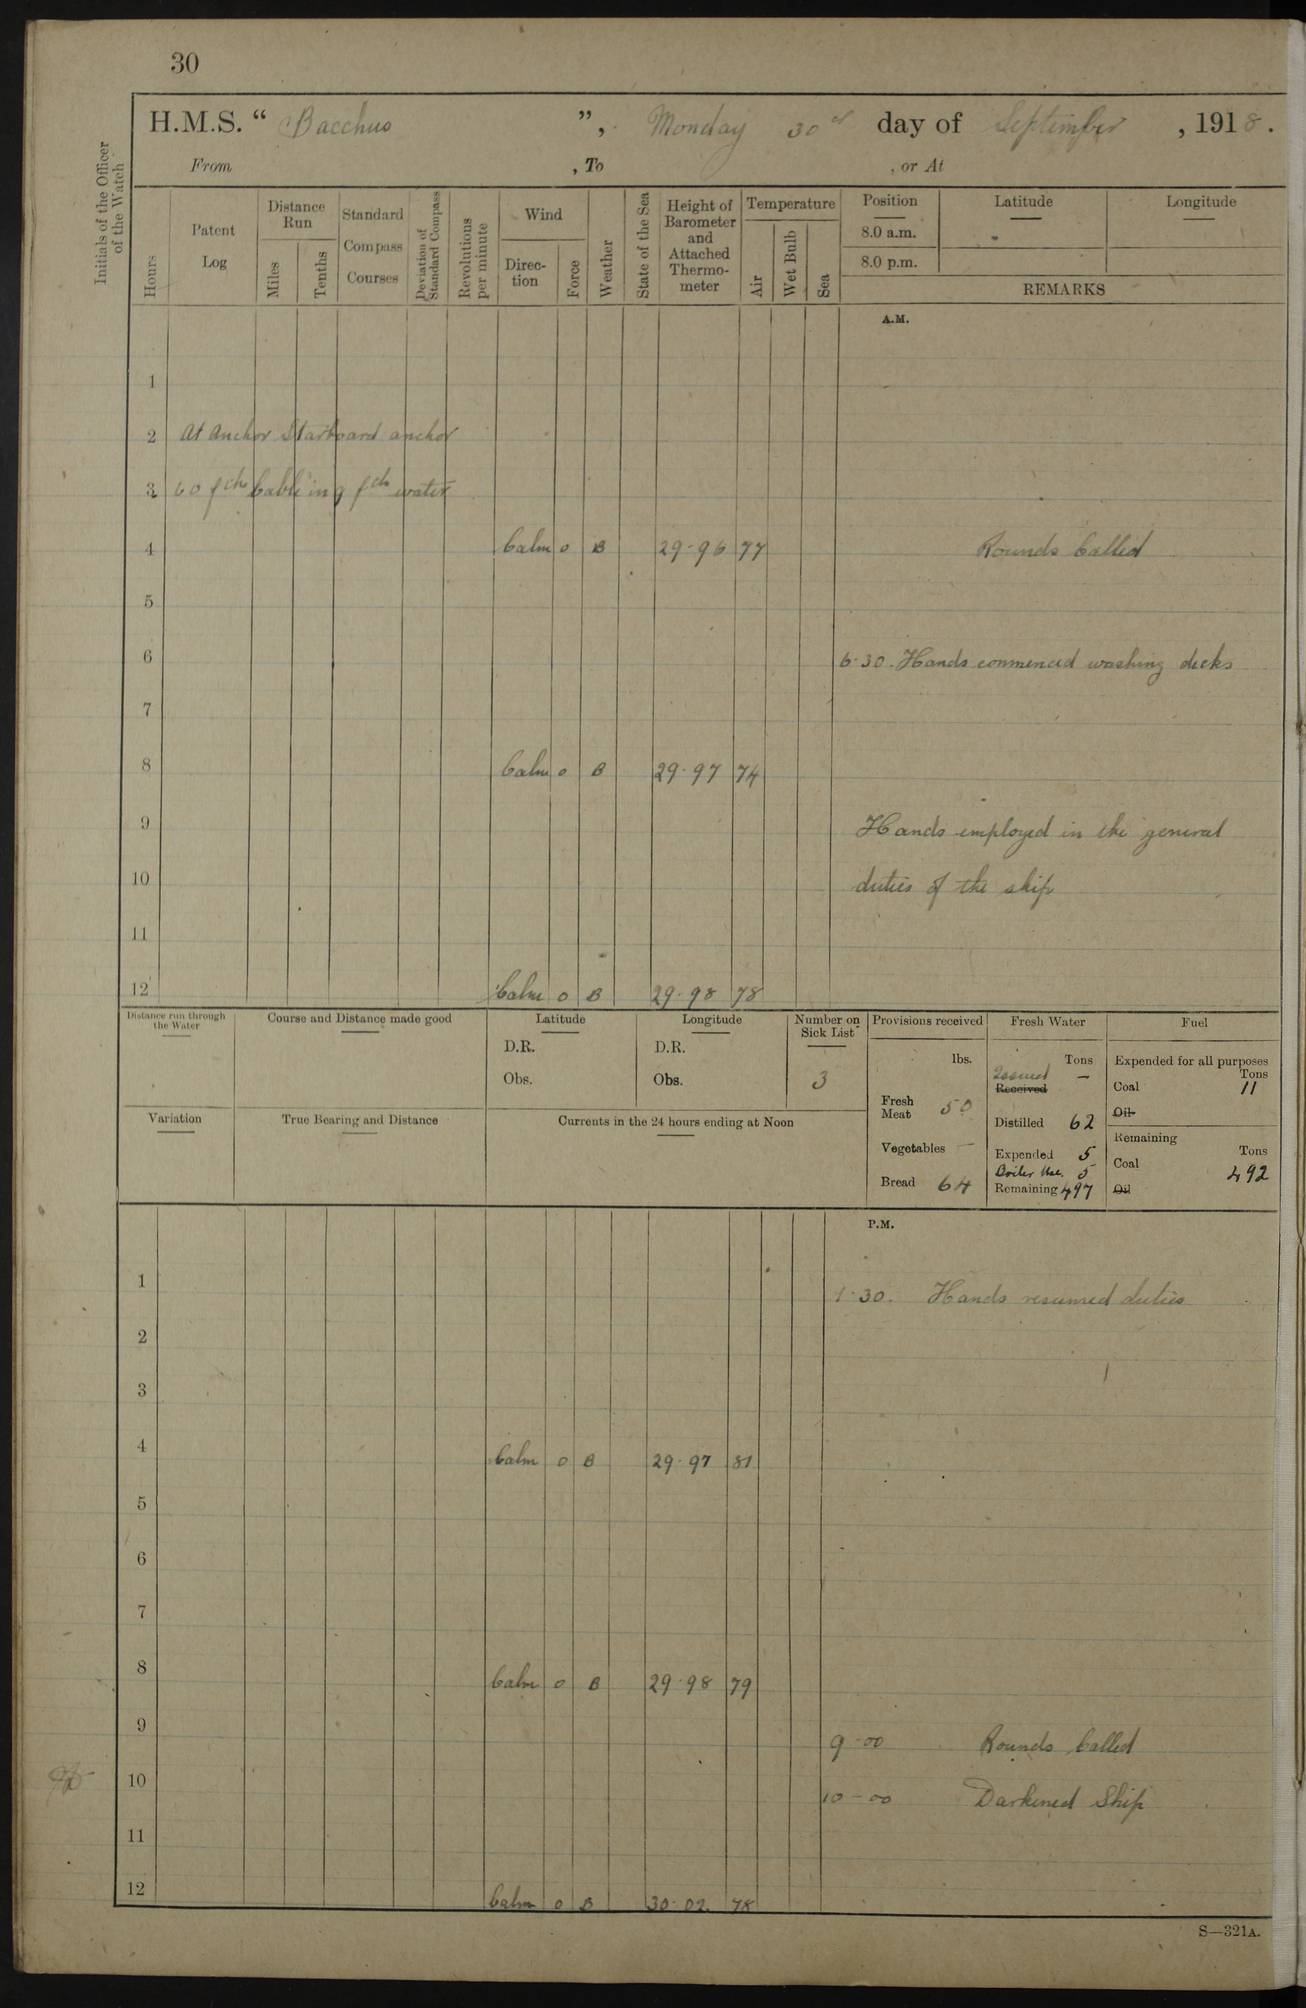 30
H.M.S. “ Bacchus ”, Monday 30th day of September , 1918.
From , To , or At
Initials of the Officer of the Watch
Hours
Patent Log
Distance Run
Miles
Tenths
Standard Compass Courses
Deviation of Standard Compass
Revolutions per minute
Wind
Direction
Force
Weather
State of the Sea
Height of Barometer and Attached Thermometer
Temperature
Air
Wet Bulb
Sea
Position Latitude Longitude
8.0 a.m.
8.0 p.m.
REMARKS
A.M.
1
2 At Anchor Starboard anchor
3 60 fths Cable in 9 fth water
4 Calm 0 B 29·96 77 Rounds Called
5
6 6·30. Hands commenced washing decks
7
8 Calm 0 B 29·97 74
9 Hands employed in the general
10 duties of the ship
11
12 Calm 0 B 29·98 78
Distance run through the Water
Course and Distance made good
Latitude
D.R.
Obs.
Longitude
D.R.
Obs.
Number on Sick List
3
Variation
True Bearing and Distance
Currents in the 24 hours ending at Noon
Provisions received
lbs.
Fresh Meat 50
Vegetables —
Bread 64
Fresh Water
Tons
Issued —
Received
Distilled 62
Expended 5
Boiler Use. 5
Remaining 497
Fuel
Expended for all purposes
Tons
Coal 11
Oil
Remaining
Tons
Coal 492
Oil
P.M.
1 1·30. Hands resumed duties
2
3
4 Calm 0 B 29·97 81
5
6
7
8 Calm 0 B 29·98 79
9 9-00 Rounds Called
10 10-00 Darkened Ship
11
12 Calm 0 B 30·02 78
S—321A.